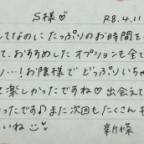 S様♡ R8.4.11
してなのに たっぷりのお時間を
って、おすすめした オプションも全て
り…!お陰様で どっぷりいちゃ
て楽しかったですෆ 出会えて
ったです♪また次回もたくさん
いね
新様